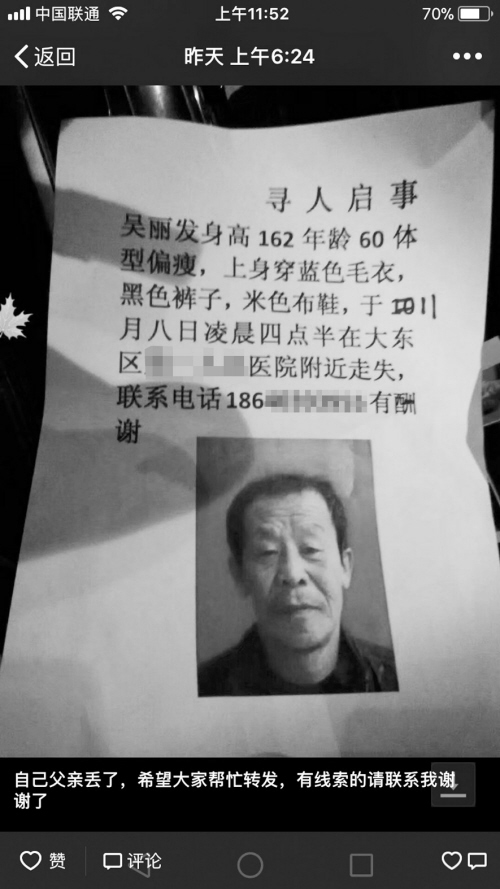 中国联通
上午11:52
70%
返回
昨天 上午6:24
寻人启事
吴丽发身高 162 年龄 60 体
型偏瘦，上身穿蓝色毛衣，
黑色裤子，米色布鞋，于
月八日凌晨四点半在大东
区 医院附近走失，
联系电话 186 有酬
谢
自己父亲丢了，希望大家帮忙转发，有线索的请联系我谢
谢了
赞
评论